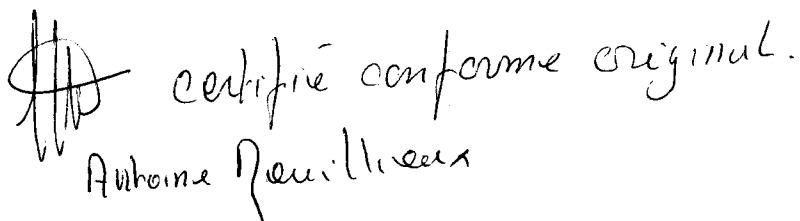 certifié conforme original.
Antoine Rouillieaux